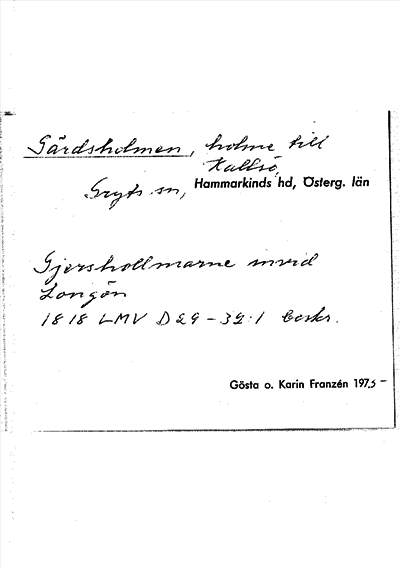 Gärdsholmen, holme till
Kallsö,
Gryts sn, Hammarkinds hd, Österg. län
Gjersholmarne invid
Longön
1818 LMV D29-32:1 beskr.
Gösta o. Karin Franzén 1975-